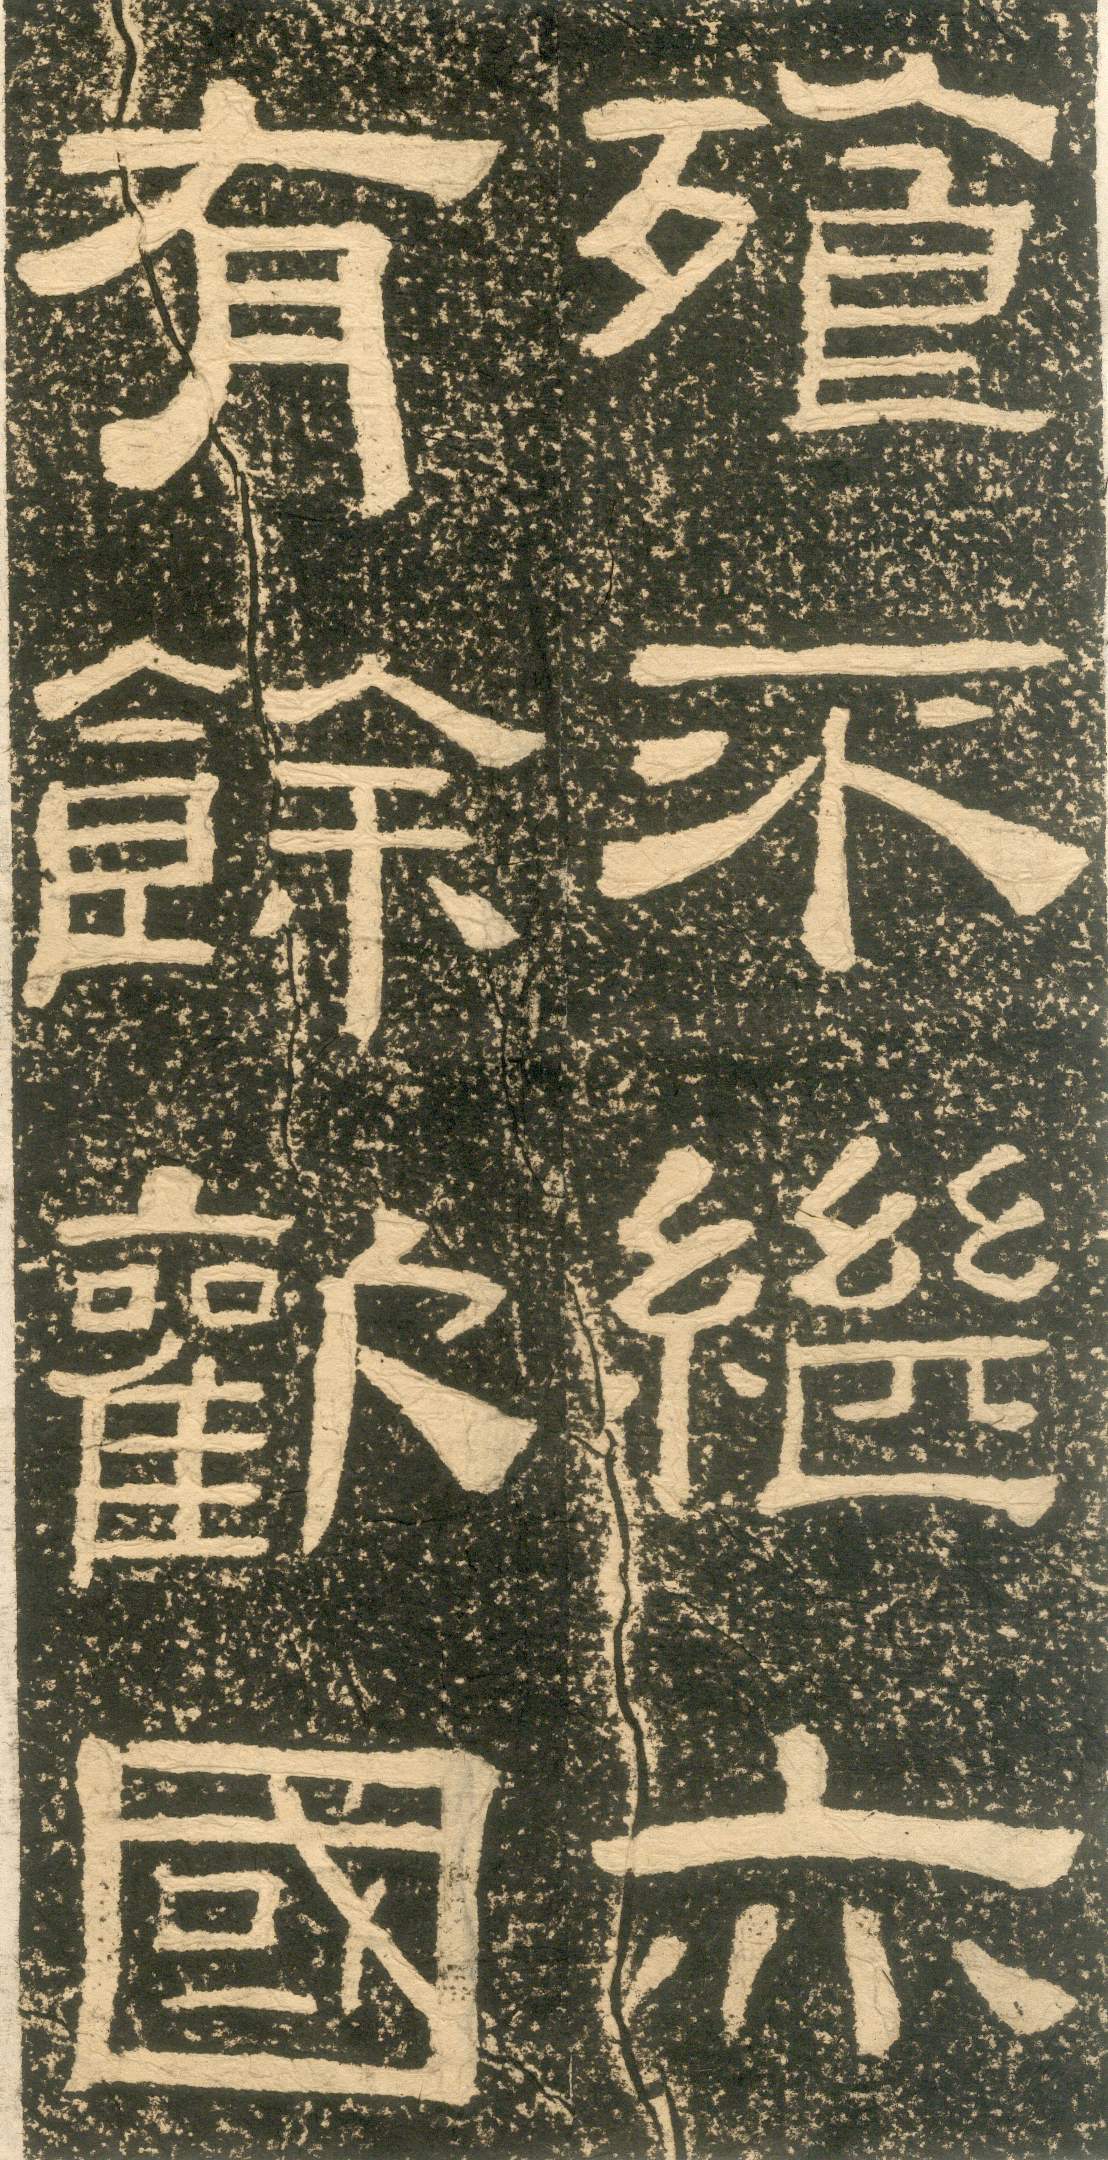 殖不繼亦
有餘歡國